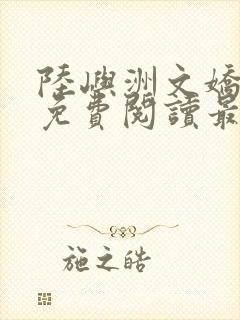 陸嶼洲文嬌
免費閱讀最
施之皓